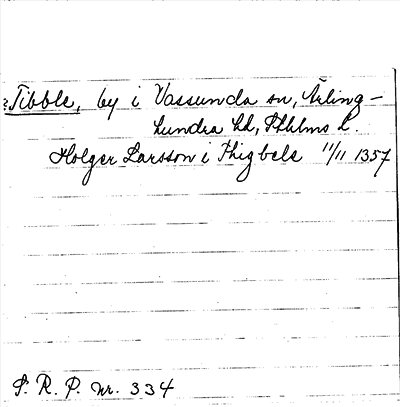 Tibble, by i Vassunda sn, Ärling-
hundra hd, Sthlms l.
Holger Larsson i Thigbele 11/11 1357
S. R. P. nr. 334